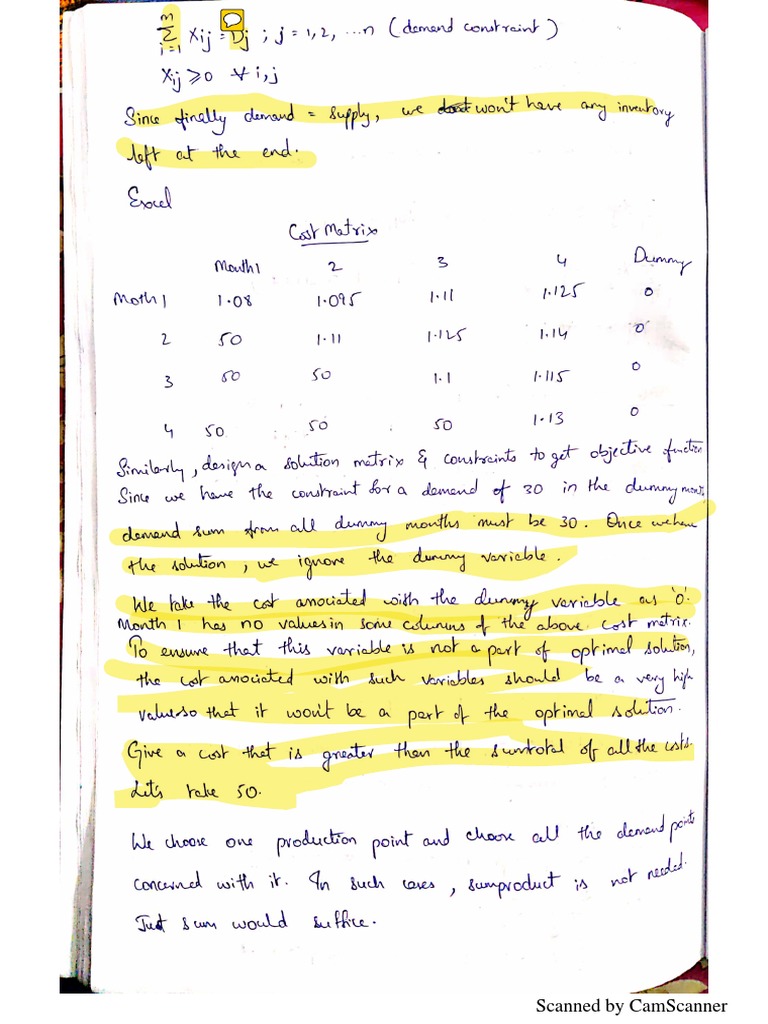 m
Σ Xij = Dj ; j = 1, 2, ... n (demand constraint)
i=1
Xij ≥ 0 ∀ i,j
Since finally demand = supply, we won't have any inventory
left at the end.
Excel
Cost Matrix
Month 1 2 3 4 Dummy
Moth 1 1.08 1.095 1.11 1.125 0
2 50 1.11 1.125 1.14 0
3 50 50 1.1 1.115 0
4 50 50 50 1.13 0
Similarly, design a solution matrix & constraints to get objective function
Since we have the constraint for a demand of 30 in the dummy month
demand sum from all dummy months must be 30. Once we have
the solution, we ignore the dummy variable.
We take the cost associated with the dummy variable as '0'.
Month 1 has no values in some columns of the above cost matrix.
To ensure that this variable is not a part of optimal solution,
the cost associated with such variables should be a very high
value so that it won't be a part of the optimal solution.
Give a cost that is greater than the sumtotal of all the costs.
Let's take 50.
We choose one production point and choose all the demand points
concerned with it. In such cases, sumproduct is not needed.
Just sum would suffice.
Scanned by CamScanner